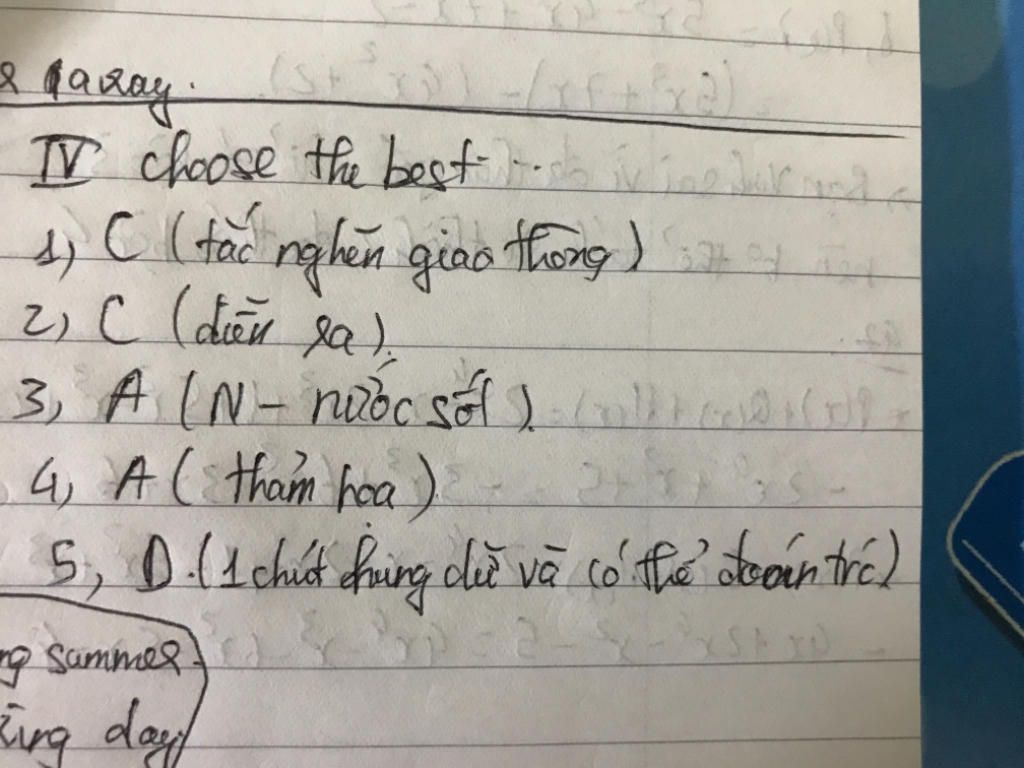 IV choose the best...
1) C (tắc nghẽn giao thông)
2) C (diễn ra).
3, A (N - nước sốt).
4, A (thảm họa)
5, D. (1 chút hung dữ và có thể đoán trc)
summer
day